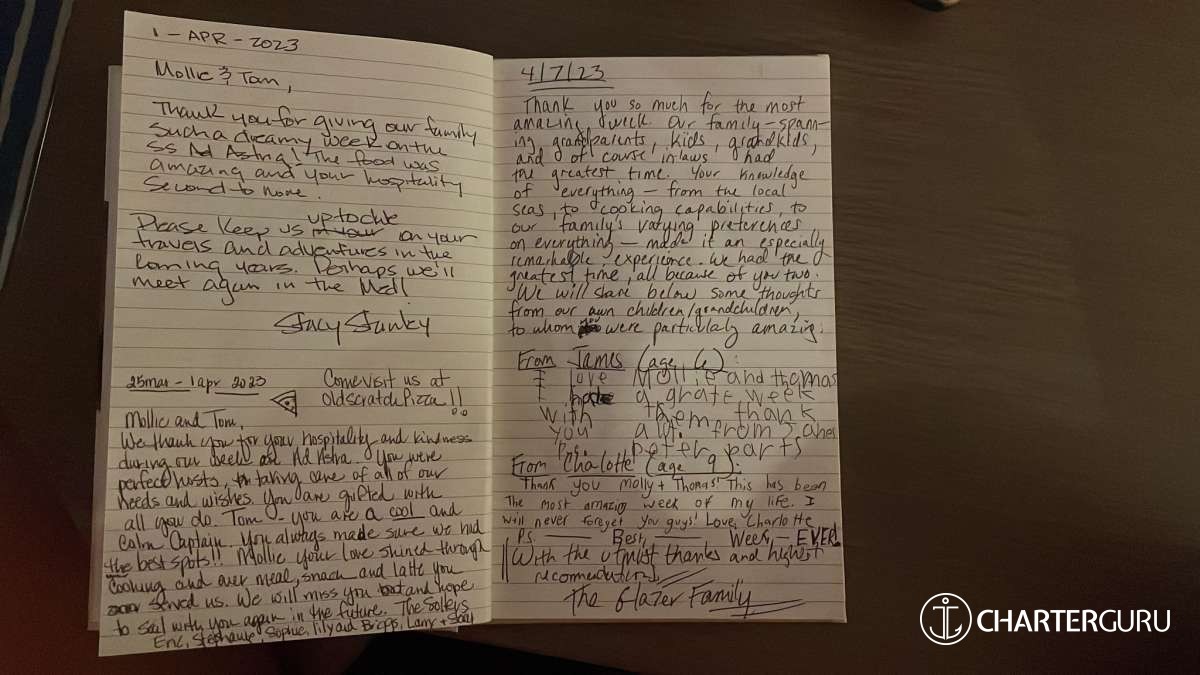 1 - APR - 2023
Mollie & Tom,
Thank you for giving our family
such a dreamy week on the
SS Ad Astra! The food was
amazing and your hospitality
second to none.
up to date
Please keep us on your
travels and adventures in the
coming years. Perhaps we'll
meet again in the Med!
Stacy Stanky
25 mar - 1 apr 2023
Come visit us at
oldscratchpizza!!
Mollie and Tom,
We thank you for your hospitality and kindness
during our week on Ad Astra. You were
perfect hosts, taking care of all of our
needs and wishes. You are gifted with
all you do. Tom - you are a cool and
calm Captain. You always made sure we had
the best spots!! Mollie your love shined through
cooking and ever meal, snack and latte you
served us. We will miss you and hope
to sail with you again in the future. The
Eric, Stephanie, Sophie, Lily and Briggs, Larry + Stacy
4/7/23
Thank you so much for the most
amazing week. Our family - spann-
ing grandparents, kids, grandkids,
and of course inlaws had
the greatest time. Your knowledge
of everything - from the local
seas, to cooking capabilities, to
our family's varying preferences
on everything - made it an especially
remarkable experience. We had the
greatest time, all because of you two.
We will share below some thoughts
from our own children/grandchildren,
to whom were particulaly amazing:
From James (age 6):
I love Mollie and thomas
I had a grate week
with them thank
you a lot. from James
p.s. peter parts
From Charlotte (age 9):
Thank you Molly + Thomas! This has been
The most amazing week of my life. I
will never foreget you guys! Love, Charlotte
Ps. Best, Week, - EVER!
With the utmost thanks and highest
recomendations,
The Glazer Family
CHARTERGURU